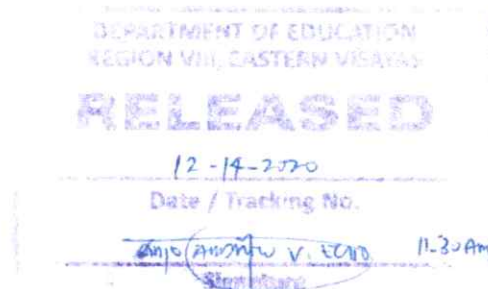 DEPARTMENT OF EDUCATION
REGION VIII, EASTERN VISAYAS
RELEASED
12-14-2020
Date / Tracking No.
V. 11:30 AM
Signature